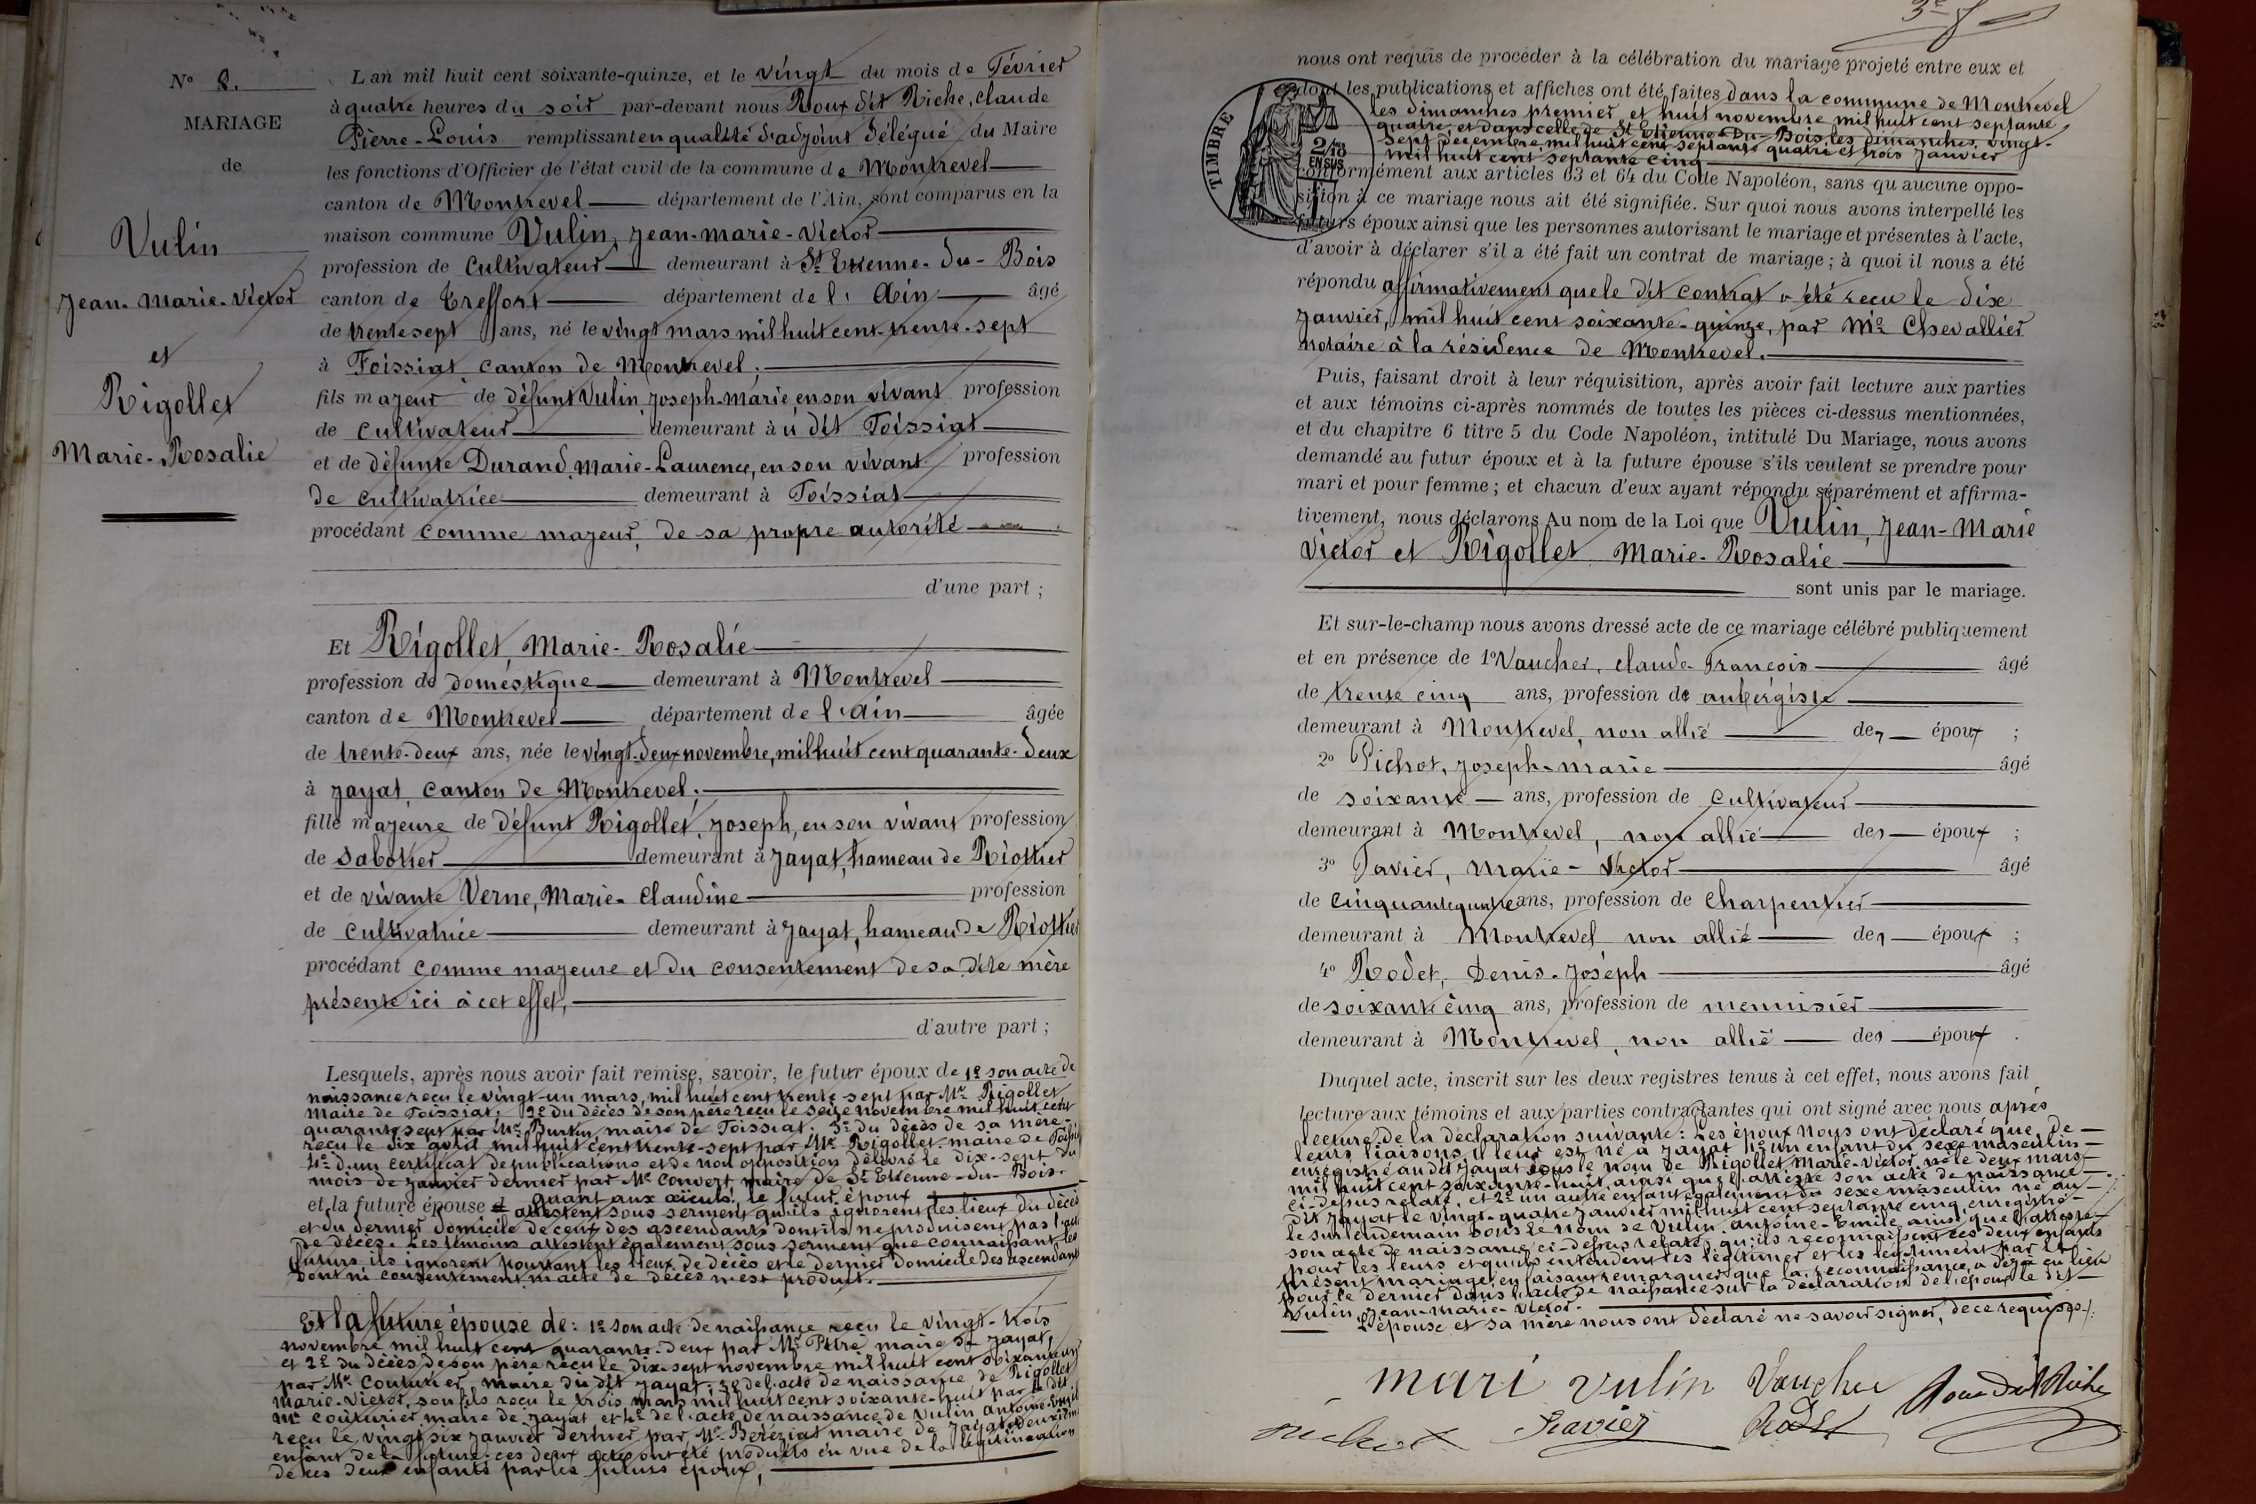 N° 8.
MARIAGE
de
Vulin
Jean-Marie-Victor
et
Rigollet
Marie-Rosalie
L'an mil huit cent soixante-quinze, et le vingt du mois de Février
à quatre heures du soir par-devant nous Roux dit Riche, Claude
Pierre-Louis remplissant en qualité d'adjoint délégué du Maire
les fonctions d'Officier de l'état civil de la commune de Montrevel
canton de Montrevel département de l'Ain, sont comparus en la
maison commune Vulin, Jean-Marie-Victor
profession de Cultivateur demeurant à St Etienne-du-Bois
canton de Treffort département de l'Ain âgé
de trente sept ans, né le vingt mars mil huit cent trente-sept
à Foissiat canton de Montrevel;
fils majeur de défunt Vulin, Joseph-Marie, en son vivant profession
de Cultivateur demeurant à u dit Foissiat
et de défunte Durand, Marie-Laurence, en son vivant profession
de cultivatrice demeurant à Foissiat
procédant comme majeur, de sa propre autorité
d'une part;
Et Rigollet, Marie-Rosalie
profession de domestique demeurant à Montrevel
canton de Montrevel département de l'Ain âgée
de trente-deux ans, née le vingt-deux novembre, mil huit cent quarante-deux
à Jayat, Canton de Montrevel;
fille majeure de défunt Rigollet, Joseph, en son vivant profession
de Sabotier demeurant à Jayat, hameau de Riottier
et de vivante Verne, Marie-Claudine profession
de Cultivatrice demeurant à Jayat, hameau de Riottier
procédant comme majeure et du consentement de sa dite mère
présente ici à cet effet,
d'autre part;
Lesquels, après nous avoir fait remise, savoir, le futur époux de 1° son acte de
naissance reçu le vingt-un mars, mil huit cent trente-sept par Mr Rigollet
Maire de Foissiat; 2° du décès de son père reçu le seize novembre mil huit cent
quarante sept par Mr Burtin, maire de Foissiat; 3° du décès de sa mère
reçu le dix avril mil huit cent trente-sept par Mr Rigollet maire de Foissiat
4° d'un certificat de publications et de non opposition délivré le dix-sept du
mois de janvier dernier par Mr Convert, maire de St Etienne-du-Bois.
et la future épouse d quant aux aïeuls, le futur époux
attestent sous serment qu'ils ignorent les lieux du décès
et du dernier domicile de ceux des ascendants dont ils ne produisent pas l'acte
de décès. Les témoins attestent également sous serment que connaissant les
futurs, ils ignorent pourtant les lieux de décès et le dernier domicile des ascendants
dont ni consentement, ni acte de décès n'est produit.
Et la future épouse de: 1° son acte de naissance reçu le vingt-trois
novembre mil huit cent quarante-deux par Mr maire de Jayat,
et 2° du décès de son père reçu le dix-sept novembre mil huit cent soixante un
par Mr Couturier maire du dit Jayat; 3° de l'acte de naissance de Rigollet
Marie-Victor, son fils reçu le trois mars mil huit cent soixante-huit par le dit
Mr Couturier maire de Jayat et 4° de l'acte de naissance de Vulin, Antoine-Emile
reçu le vingt six janvier dernier par Mr Béréziat maire de Jayat, deuxième
enfant de la future; ces deux actes ont été produits en vue de la légitimation
de ces deux enfants par les futurs époux;
3e
nous ont requis de procéder à la célébration du mariage projeté entre eux et
dont les publications et affiches ont été faites dans la commune de Montrevel
les dimanches premier et huit novembre mil huit cent septante
quatre; et dans celle de St Etienne-du-Bois les dimanches vingt-
sept décembre mil huit cent septante quatre et trois janvier
mil huit cent septante cinq
TIMBRE
2/10
EN SUS
conformément aux articles 63 et 64 du Code Napoléon, sans qu'aucune oppo-
sition à ce mariage nous ait été signifiée. Sur quoi nous avons interpellé les
futurs époux ainsi que les personnes autorisant le mariage et présentes à l'acte,
d'avoir à déclarer s'il a été fait un contrat de mariage; à quoi il nous a été
répondu affirmativement que le dit contrat a été reçu le dix
janvier, mil huit cent soixante-quinze, par Me Chevallier
notaire à la résidence de Montrevel.
Puis, faisant droit à leur réquisition, après avoir fait lecture aux parties
et aux témoins ci-après nommés de toutes les pièces ci-dessus mentionnées,
et du chapitre 6 titre 5 du Code Napoléon, intitulé Du Mariage, nous avons
demandé au futur époux et à la future épouse s'ils veulent se prendre pour
mari et pour femme; et chacun d'eux ayant répondu séparément et affirma-
tivement, nous déclarons Au nom de la Loi que Vulin, Jean-Marie
Victor et Rigollet Marie-Rosalie
sont unis par le mariage.
Et sur-le-champ nous avons dressé acte de ce mariage célébré publiquement
et en présence de 1° Vaucher, Claude-François âgé
de trente cinq ans, profession de aubergiste
demeurant à Montrevel, non allié des époux ;
2° Pichot, Joseph-Marie âgé
de soixante ans, profession de Cultivateur
demeurant à Montrevel, non allié des époux ;
3° Favier, Marie-Victor âgé
de Cinquante quatre ans, profession de Charpentier
demeurant à Montrevel non allié des époux ;
4° Rodet, Denis-Joseph âgé
de soixante cinq ans, profession de menuisier
demeurant à Montrevel, non allié des époux .
Duquel acte, inscrit sur les deux registres tenus à cet effet, nous avons fait
lecture aux témoins et aux parties contractantes qui ont signé avec nous après
lecture de la déclaration suivante: Les époux nous ont déclaré que de
leurs liaisons, il leur est né à Jayat 1° un enfant du sexe masculin
enregistré au dit Jayat sous le nom de Rigollet Marie-Victor, né le deux mars
mil huit cent soixante-huit, ainsi que l'atteste son acte de naissance
ci-dessus relaté, et 2° un autre enfant également du sexe masculin né au
dit Jayat le vingt-quatre janvier mil huit cent septante cinq, enregistré
le surlendemain sous le nom de Vulin, Antoine-Emile ainsi que l'atteste
son acte de naissance ci-dessus relaté, qu'ils reconnaissent ces deux enfants
pour les leurs et qu'ils entendent les légitimer et les légitiment par le
présent mariage, en faisant remarquer que la reconnaissance a déjà eu lieu
pour le dernier dans l'acte de naissance sur la déclaration de l'époux le dit
Vulin, Jean-Marie-Victor.
L'épouse et sa mère nous ont déclaré ne savoir signer, de ce requises.
mari vulin Vaucher Roux dit Riche
pichot favier Rodet